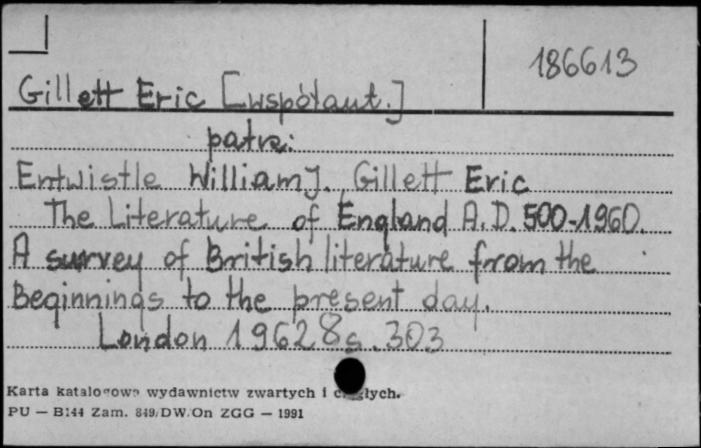 186613
Gillett Eric [współaut.]
patrz:
Entwistle William J. Gillett Eric
The Literature of England A.D. 500-1960.
A survey of British literature from the
Beginnings to the present day.
London 1962 8 s. 303
Karta katalogowa wydawnictw zwartych i ciągłych.
PU — B144 Zam. 849/DW/On ZGG — 1991